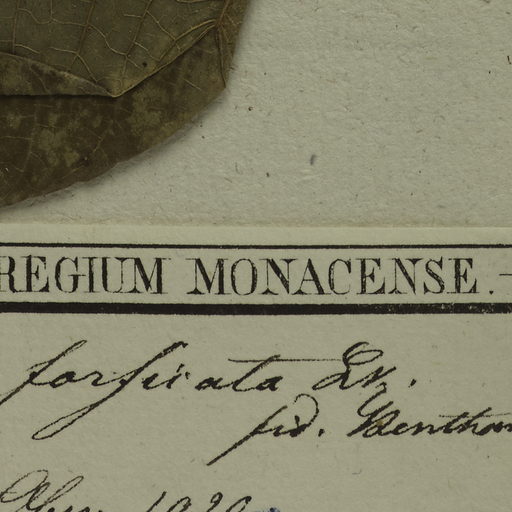 REGIUM MONACENSE.
forficata Lk.
fid. Bentham